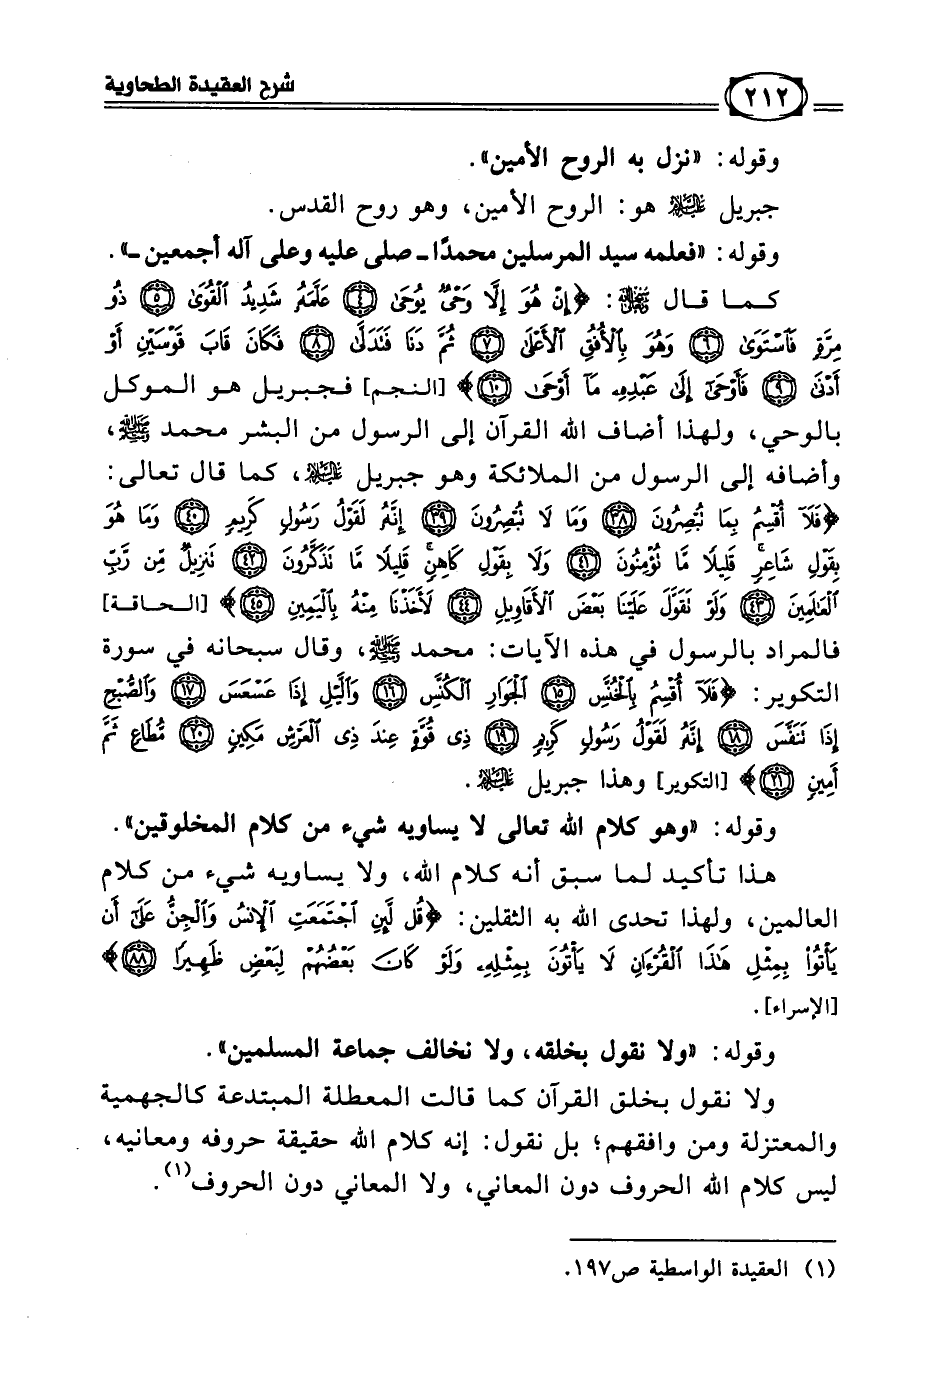 ٢١٢
شرح العقيدة الطحاوية
وقوله: «نزل به الروح الأمين».
جبريل عليه السلام هو: الروح الأمين، وهو روح القدس.
وقوله: «فعلمه سيد المرسلين محمدًا ـ صلى عليه وعلى آله أجمعين ـ».
كما قال ﷺ: ﴿إِنْ هُوَ إِلَّا وَحْيٌ يُوحَىٰ ٤ عَلَّمَهُ شَدِيدُ الْقُوَىٰ ٥ ذُو
مِرَّةٍ فَاسْتَوَىٰ ٦ وَهُوَ بِالْأُفُقِ الْأَعْلَىٰ ٧ ثُمَّ دَنَا فَتَدَلَّىٰ ٨ فَكَانَ قَابَ قَوْسَيْنِ أَوْ
أَدْنَىٰ ٩ فَأَوْحَىٰ إِلَىٰ عَبْدِهِ مَا أَوْحَىٰ ١٠﴾ [النجم] فجبريل هو الموكل
بالوحي، ولهذا أضاف الله القرآن إلى الرسول من البشر محمد ﷺ،
وأضافه إلى الرسول من الملائكة وهو جبريل عليه السلام، كما قال تعالى:
﴿فَلَا أُقْسِمُ بِمَا تُبْصِرُونَ ٣٨ وَمَا لَا تُبْصِرُونَ ٣٩ إِنَّهُ لَقَوْلُ رَسُولٍ كَرِيمٍ ٤٠ وَمَا هُوَ
بِقَوْلِ شَاعِرٍ ۚ قَلِيلًا مَّا تُؤْمِنُونَ ٤١ وَلَا بِقَوْلِ كَاهِنٍ ۚ قَلِيلًا مَّا تَذَكَّرُونَ ٤٢ تَنزِيلٌ مِّن رَّبِّ
الْعَالَمِينَ ٤٣ وَلَوْ تَقَوَّلَ عَلَيْنَا بَعْضَ الْأَقَاوِيلِ ٤٤ لَأَخَذْنَا مِنْهُ بِالْيَمِينِ ٤٥﴾ [الحاقة]
فالمراد بالرسول في هذه الآيات: محمد ﷺ، وقال سبحانه في سورة
التكوير: ﴿فَلَا أُقْسِمُ بِالْخُنَّسِ ١٥ الْجَوَارِ الْكُنَّسِ ١٦ وَاللَّيْلِ إِذَا عَسْعَسَ ١٧ وَالصُّبْحِ
إِذَا تَنَفَّسَ ١٨ إِنَّهُ لَقَوْلُ رَسُولٍ كَرِيمٍ ١٩ ذِي قُوَّةٍ عِندَ ذِي الْعَرْشِ مَكِينٍ ٢٠ مُّطَاعٍ ثَمَّ
أَمِينٍ ٢١﴾ [التكوير] وهذا جبريل عليه السلام.
وقوله: «وهو كلام الله تعالى لا يساويه شيء من كلام المخلوقين».
هذا تأكيد لما سبق أنه كلام الله، ولا يساويه شيء من كلام
العالمين، ولهذا تحدى الله به الثقلين: ﴿قُل لَّئِنِ اجْتَمَعَتِ الْإِنسُ وَالْجِنُّ عَلَىٰ أَن
يَأْتُوا بِمِثْلِ هَٰذَا الْقُرْآنِ لَا يَأْتُونَ بِمِثْلِهِ وَلَوْ كَانَ بَعْضُهُمْ لِبَعْضٍ ظَهِيرًا ٨٨﴾
[الإسراء].
وقوله: «ولا نقول بخلقه، ولا نخالف جماعة المسلمين».
ولا نقول بخلق القرآن كما قالت المعطلة المبتدعة كالجهمية
والمعتزلة ومن وافقهم؛ بل نقول: إنه كلام الله حقيقة حروفه ومعانيه،
ليس كلام الله الحروف دون المعاني، ولا المعاني دون الحروف(١).
(١) العقيدة الواسطية ص١٩٧.